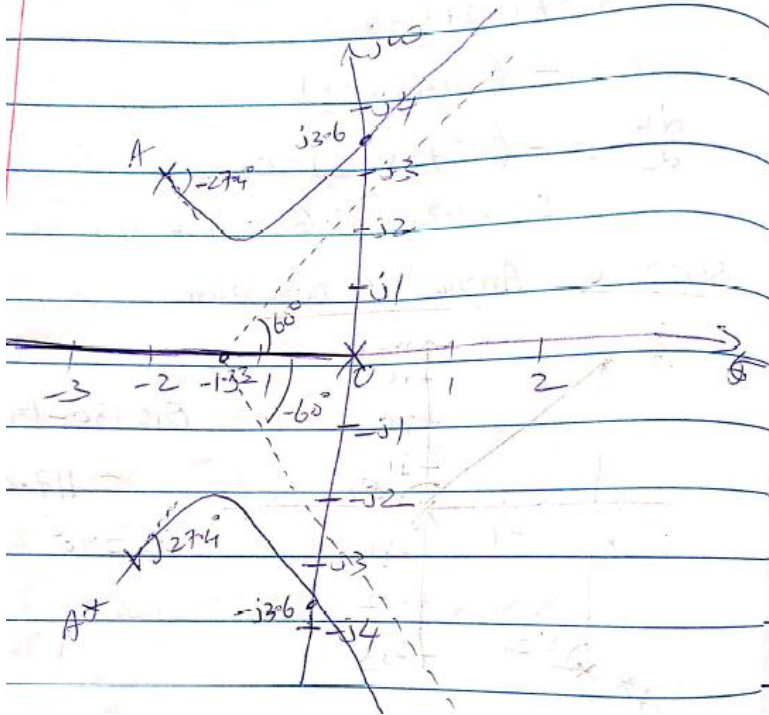 jω
j4
j3.6
A
-27.4°
j3
j2
j1
60°
-3 -2 -1.33 -1 0 1 2
-60°
-j1
-j2
27.4°
-j3
A*
-j3.6
-j4